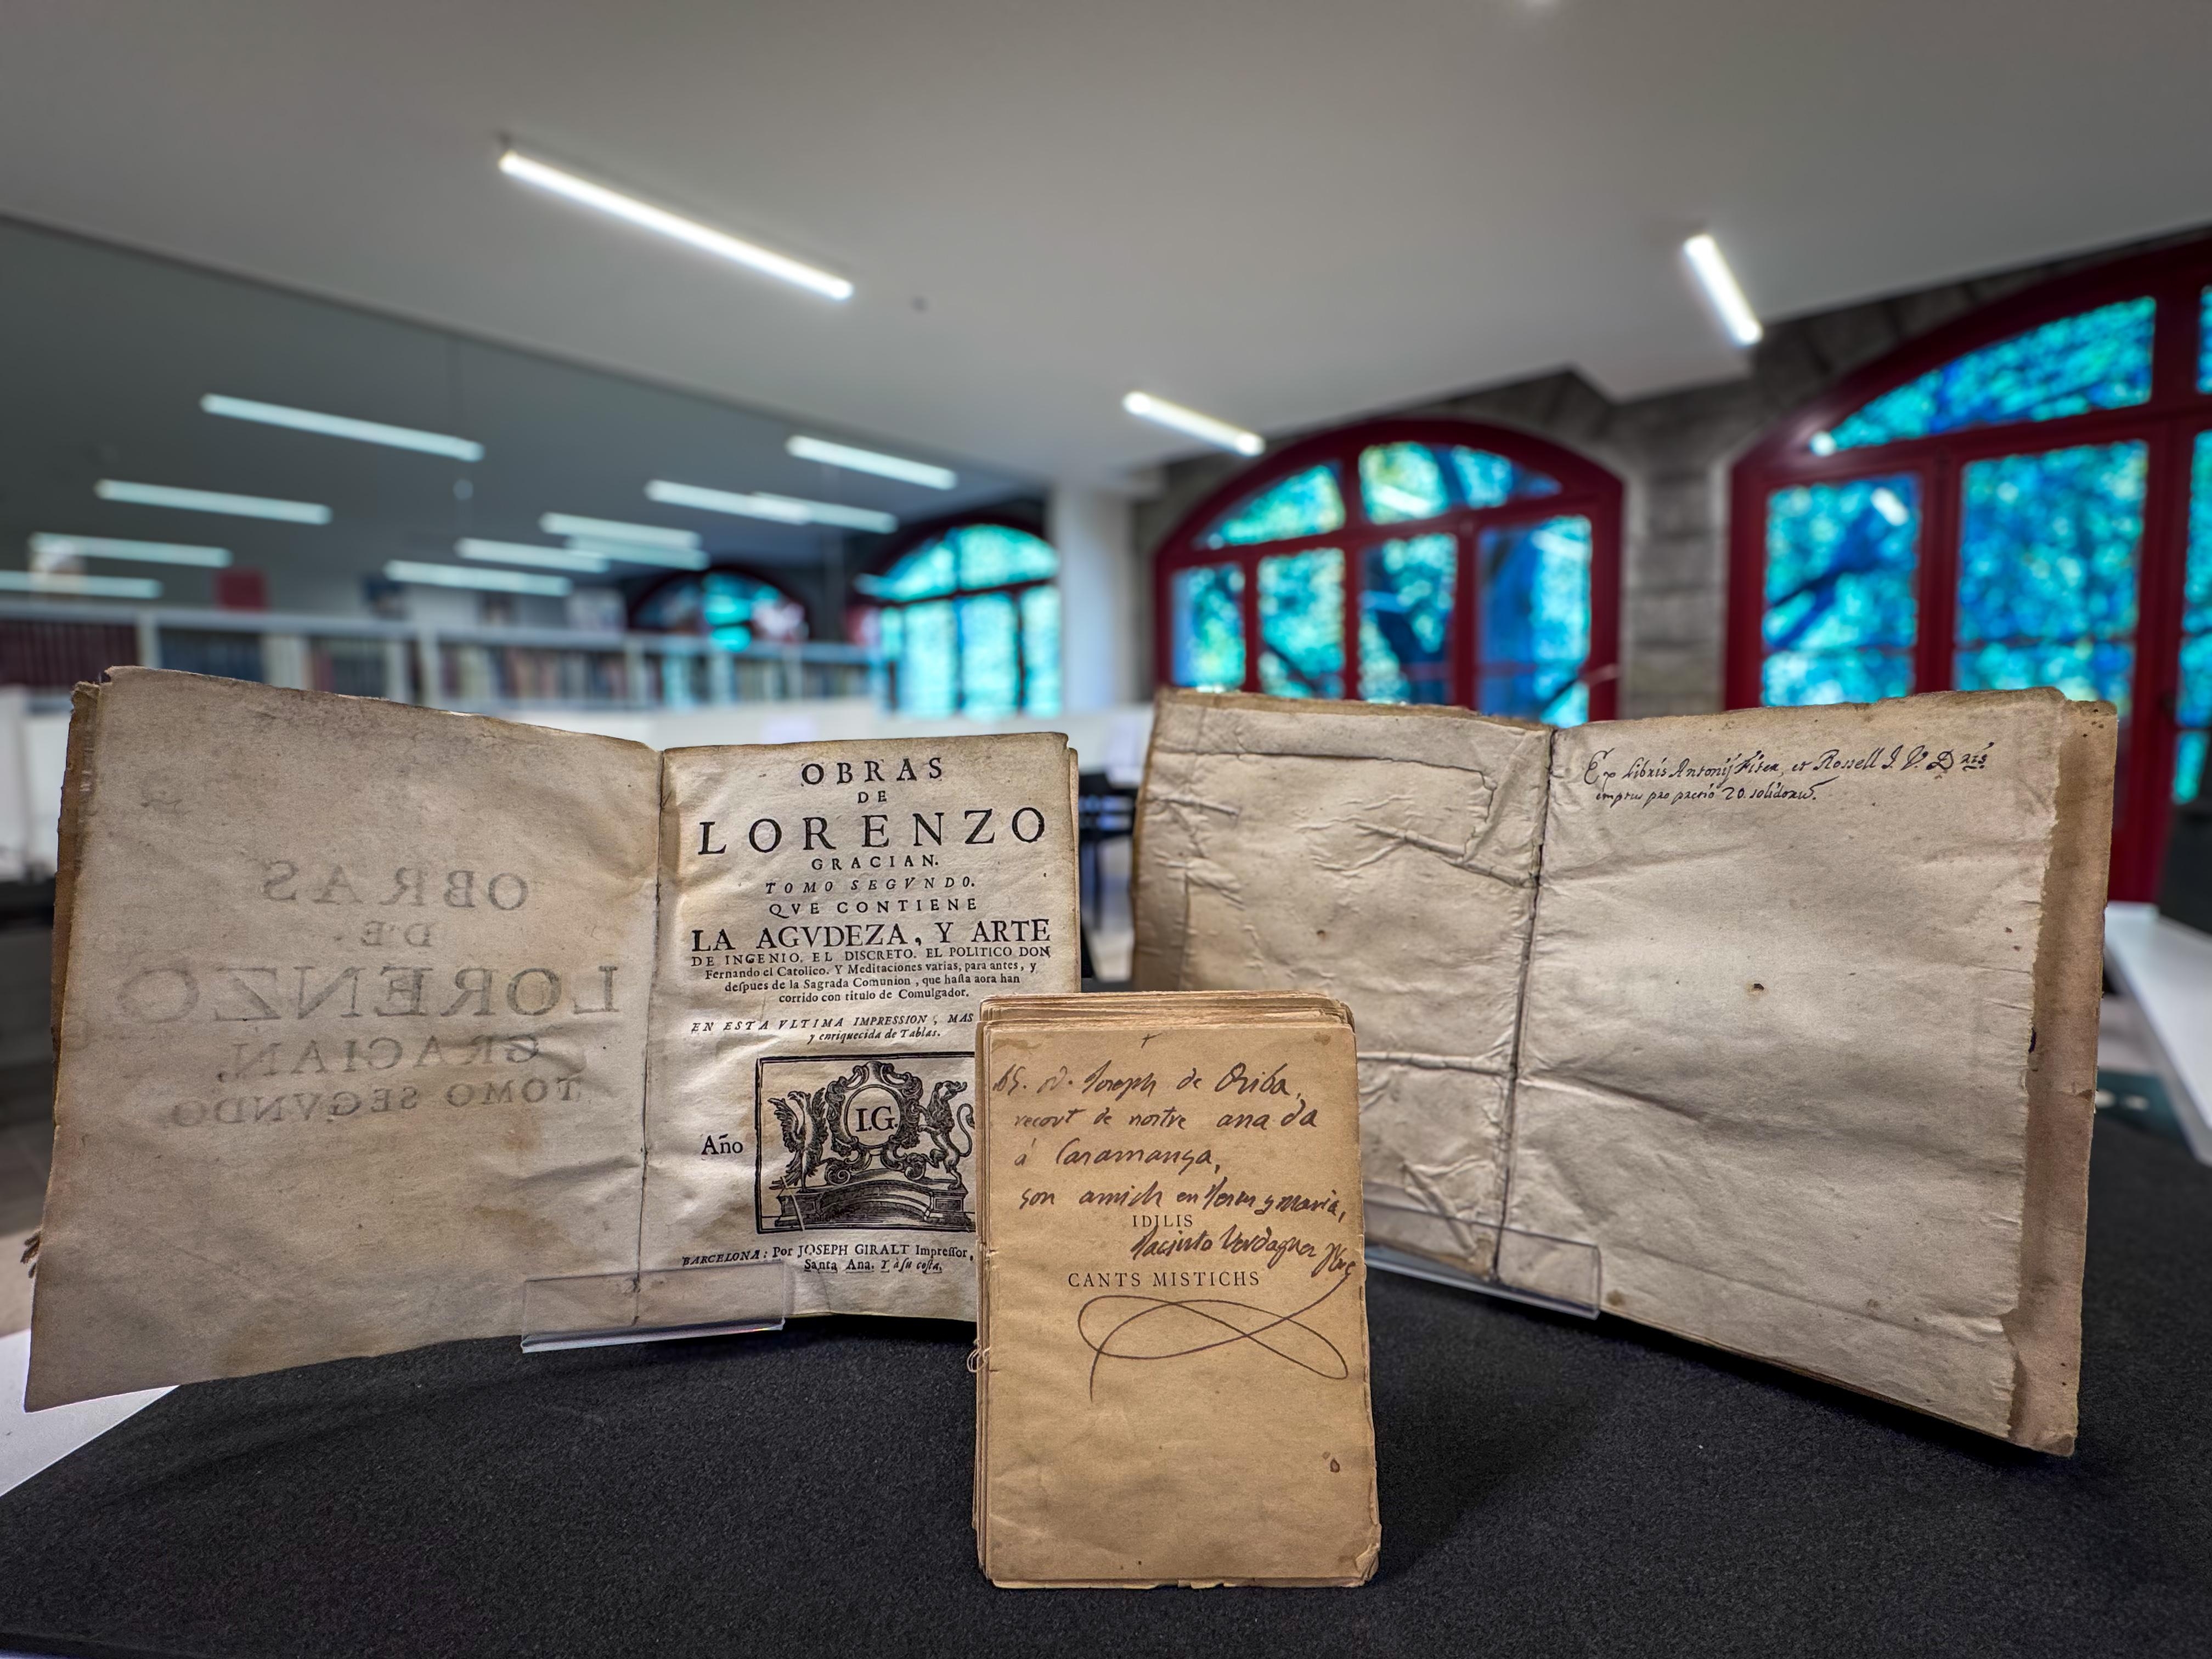 OBRAS
DE
LORENZO
GRACIAN,
TOMO SEGVNDO
OBRAS
DE
LORENZO
GRACIAN.
TOMO SEGVNDO.
QVE CONTIENE
LA AGVDEZA, Y ARTE
DE INGENIO. EL DISCRETO. EL POLITICO DON
Fernando el Catolico. Y Meditaciones varias, para antes, y
deſpues de la Sagrada Comunion, que haſta aora han
corrido con titulo de Comulgador.
EN ESTA VLTIMA IMPRESSION, MAS
y enriquecida de Tablas.
I.G.
Año
BARCELONA: Por JOSEPH GIRALT Impreſſor,
Santa Ana. Y à ſu coſta,
D. Joseph de Oriba,
recort de nostre anada
á Caramanya,
son amich en Jesus y Maria,
Jacinto Verdaguer Pbre
IDILIS
CANTS MISTICHS
Ex libris Antonij Fiter, et Rossell J. V. D.
emptus pro pretio 20. solidorum.